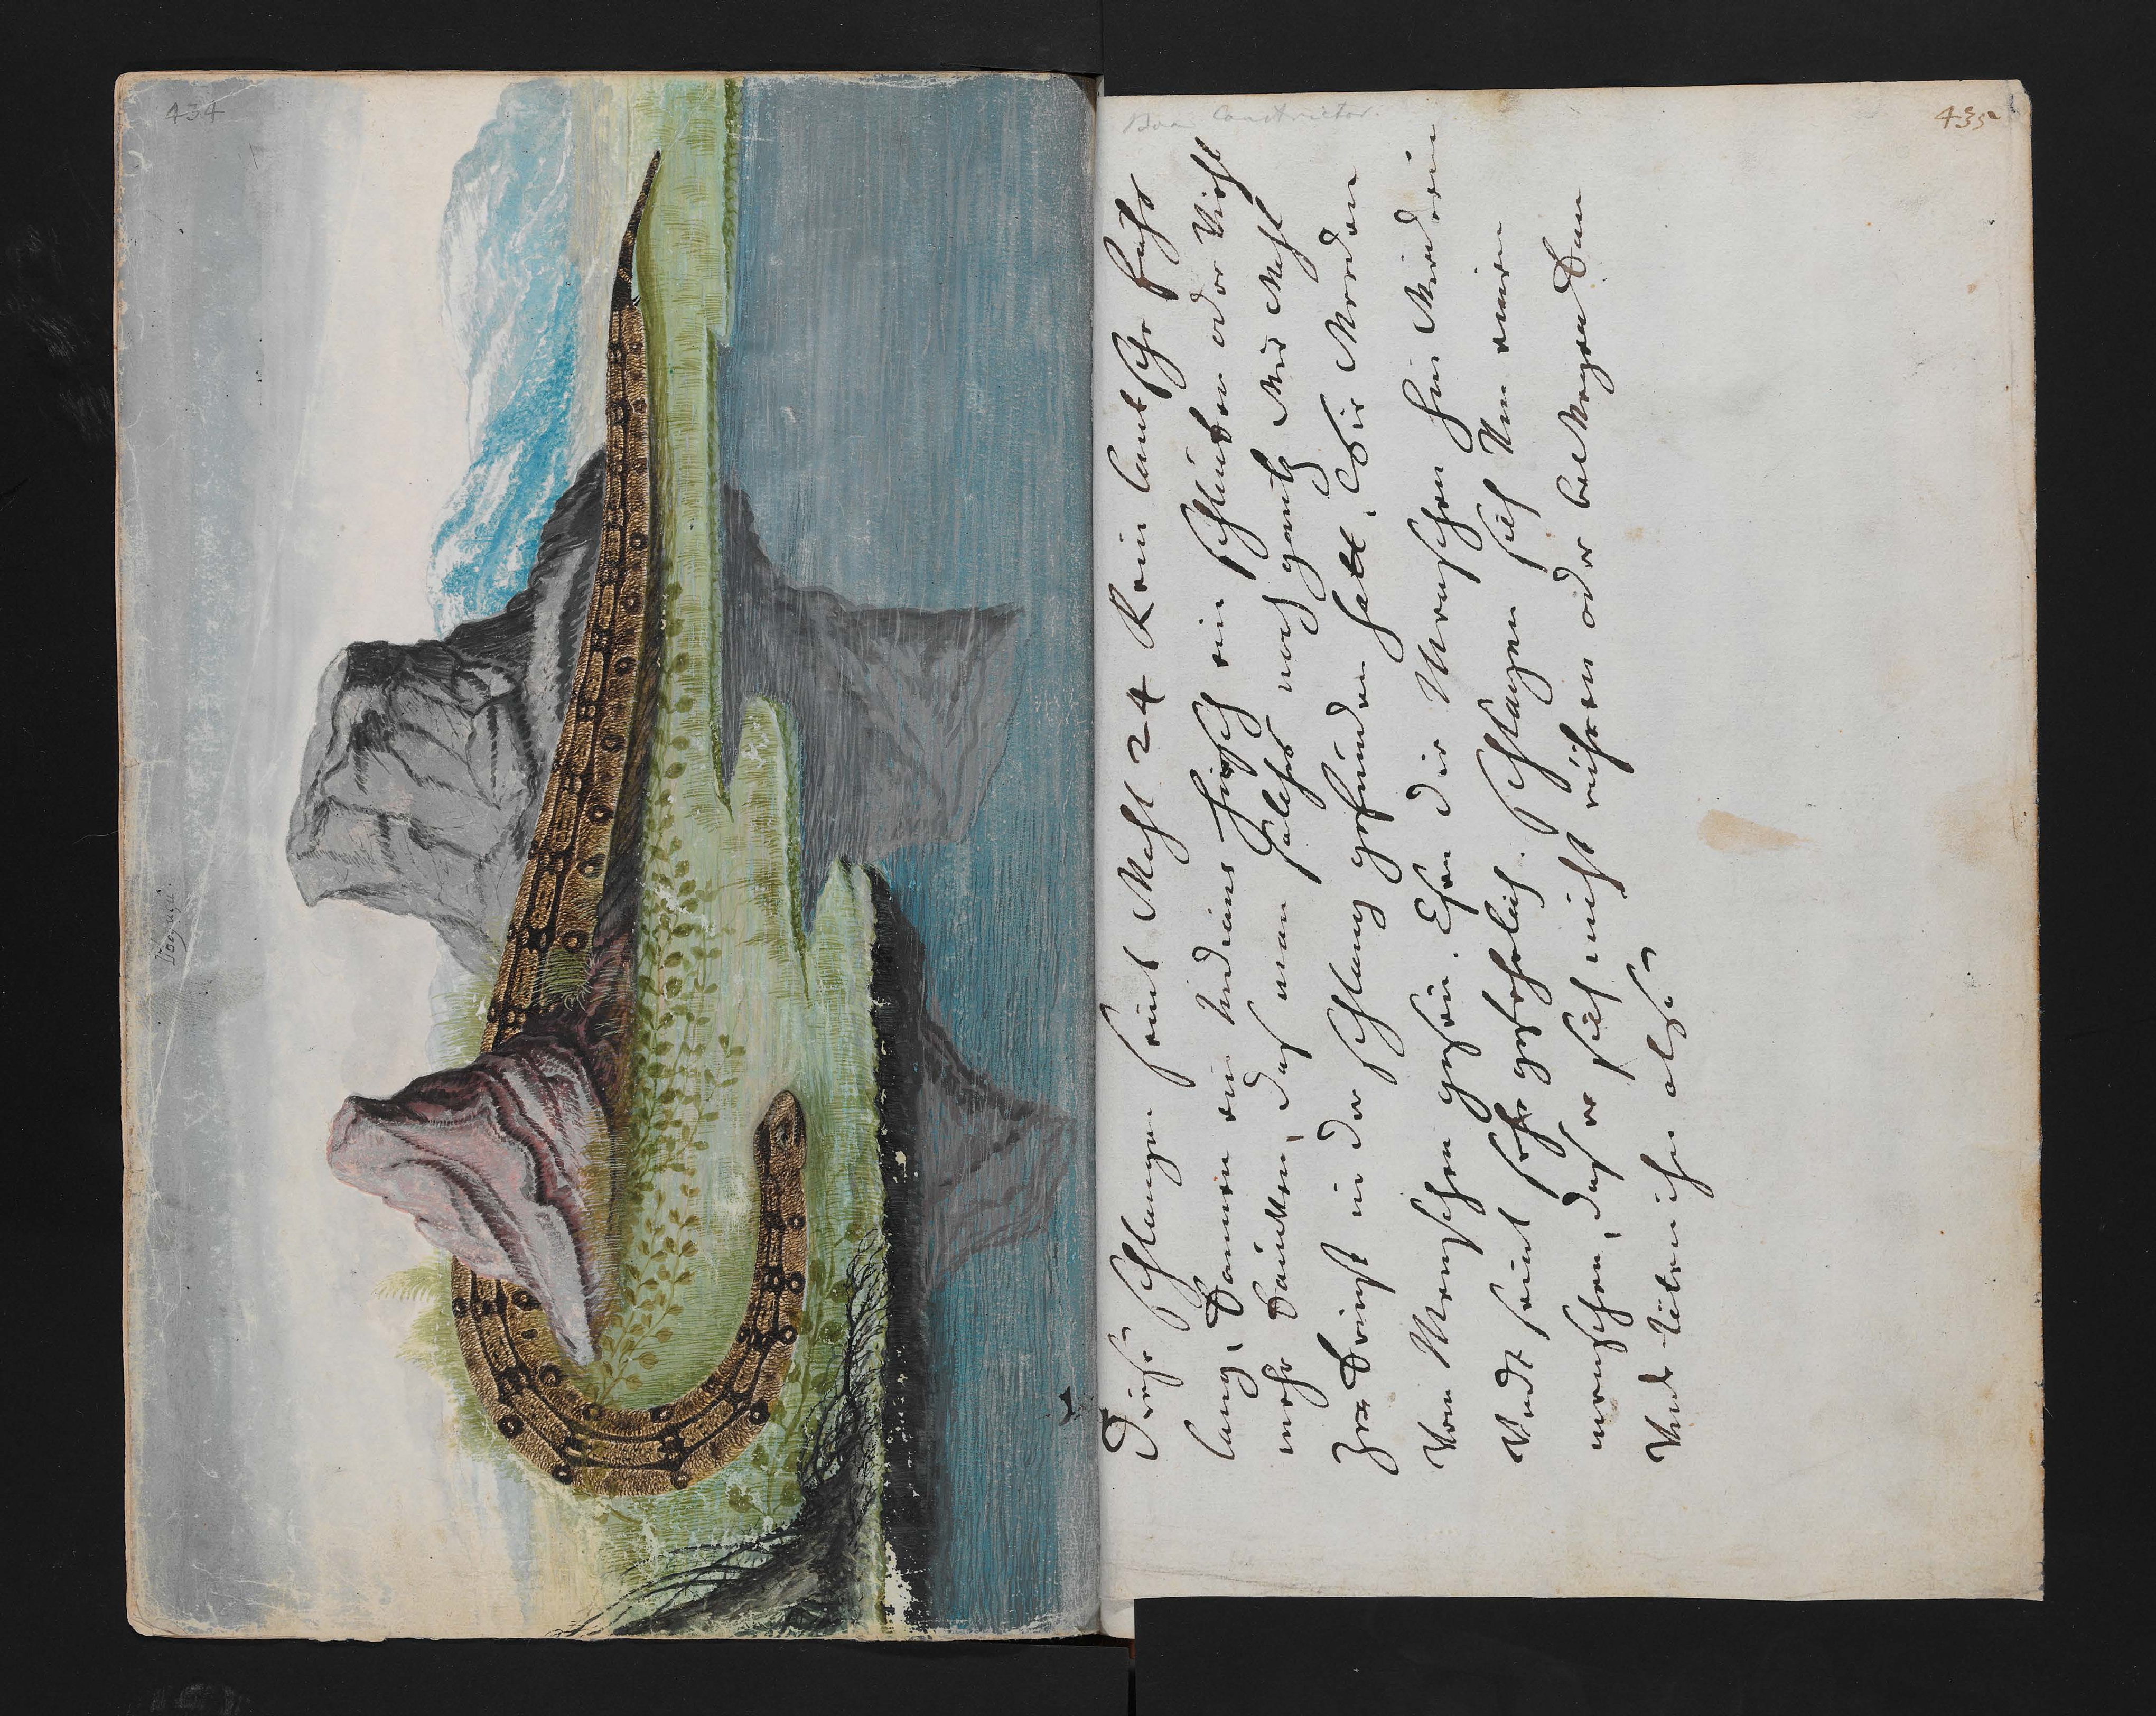 434
Boa Constrictor.
435
Diese schlangen seint Wohl 24 Rein lantsche fuhs
lang, kannen ein Indians Hirsch ein schlucken oder Viehl
mehr daucken, das man solches noch gantz Wie Wohl
in der schlang gefunden hatt, die Werden
Von Menschen gesen. Ehen die Menschen hin Wieder ein
Vndt seint sehr gefehrlich. schlangen sich Um einen
menschen, das er sich nicht rühren oder bewegen kan
Vndt töten ihn also